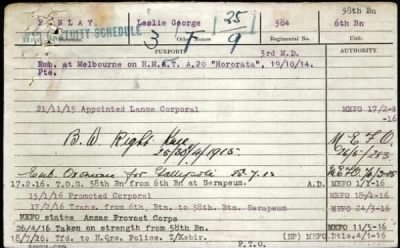 FINLAY. Leslie George 25 584 58th Bn
6th Bn
W. GRATUITY SCHEDULE
3 F 9
PURPORT AUTHORITY.
3rd M.D.
Emb. at Melbourne on H.M.A.T. A.20 "Hororata", 19/10/14.
Pte.
21/11/15 Appointed Lance Corporal MEFO 17/2
B. W. Right Knee M.E.F.O.
Emb. for Gallipoli
17.2.16. T.O.S. 58th Bn from 6th Bn at Serapeum. A.D. MEFO 1/Y-16
15/1/16 Promoted Corporal MEFO
17/2/16 Trans. from 6th Btn. to 58th. Btn. Serapeum MEFO
MEFO states Anzac Provost Corps
26/4/16 Taken on strength from 58th Bn. MEFO 11/5-16
18/2/16. Tfd. to H.Qrs. Police. T/Kebir. (HP) MEFO.Dtls.4/1-16
P.T.O.